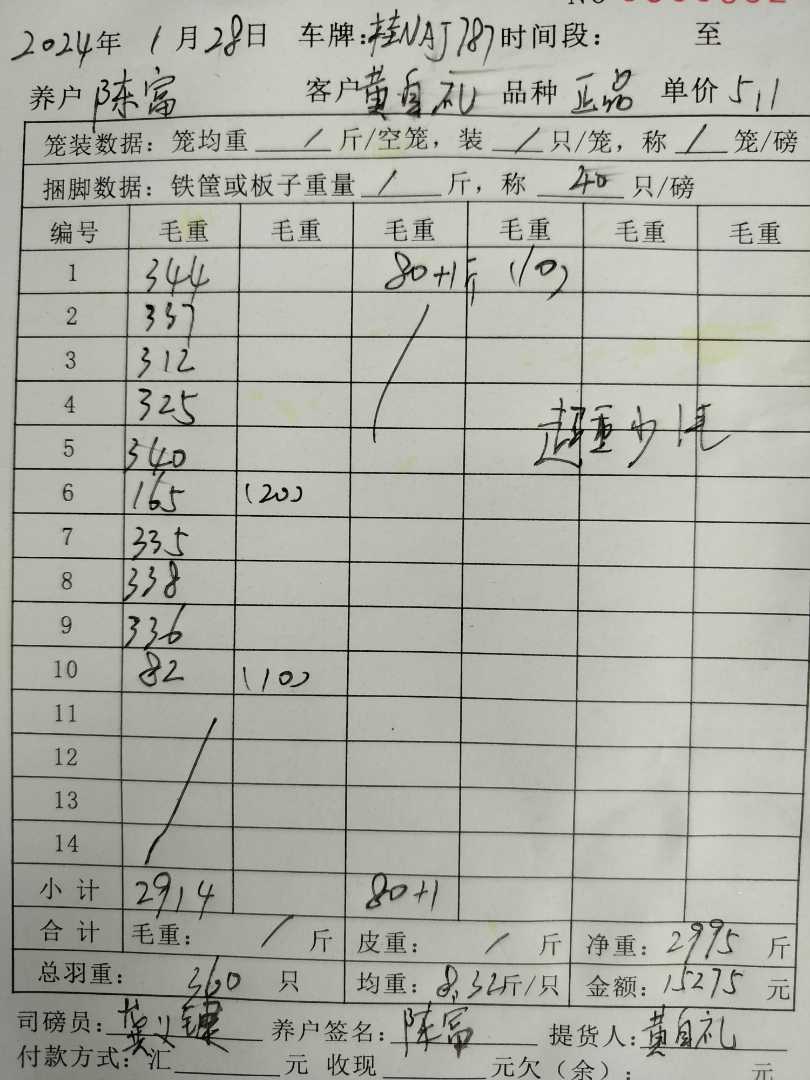 2024年 1月28日 车牌:桂NAJ787时间段: 至
养户 陈富 客户 黄自礼 品种 正品 单价 5.1
笼装数据: 笼均重 / 斤/空笼, 装 / 只/笼, 称 / 笼/磅
捆脚数据: 铁筐或板子重量 / 斤, 称 40 只/磅
编号 毛重 毛重 毛重 毛重 毛重 毛重
1 344 80+1斤 (10)
2 337
3 312
4 325 超重少毛
5 340
6 165 (20)
7 335
8 338
9 336
10 82 (10)
11
12
13
14
小 计 2914 80+1
合 计 毛重: / 斤 皮重: / 斤 净重: 2995 斤
总羽重: 360 只 均重: 8.32斤/只 金额: 15275 元
司磅员: 养户签名: 陈富 提货人: 黄自礼
付款方式: 汇 元 收现 元欠(余): 元